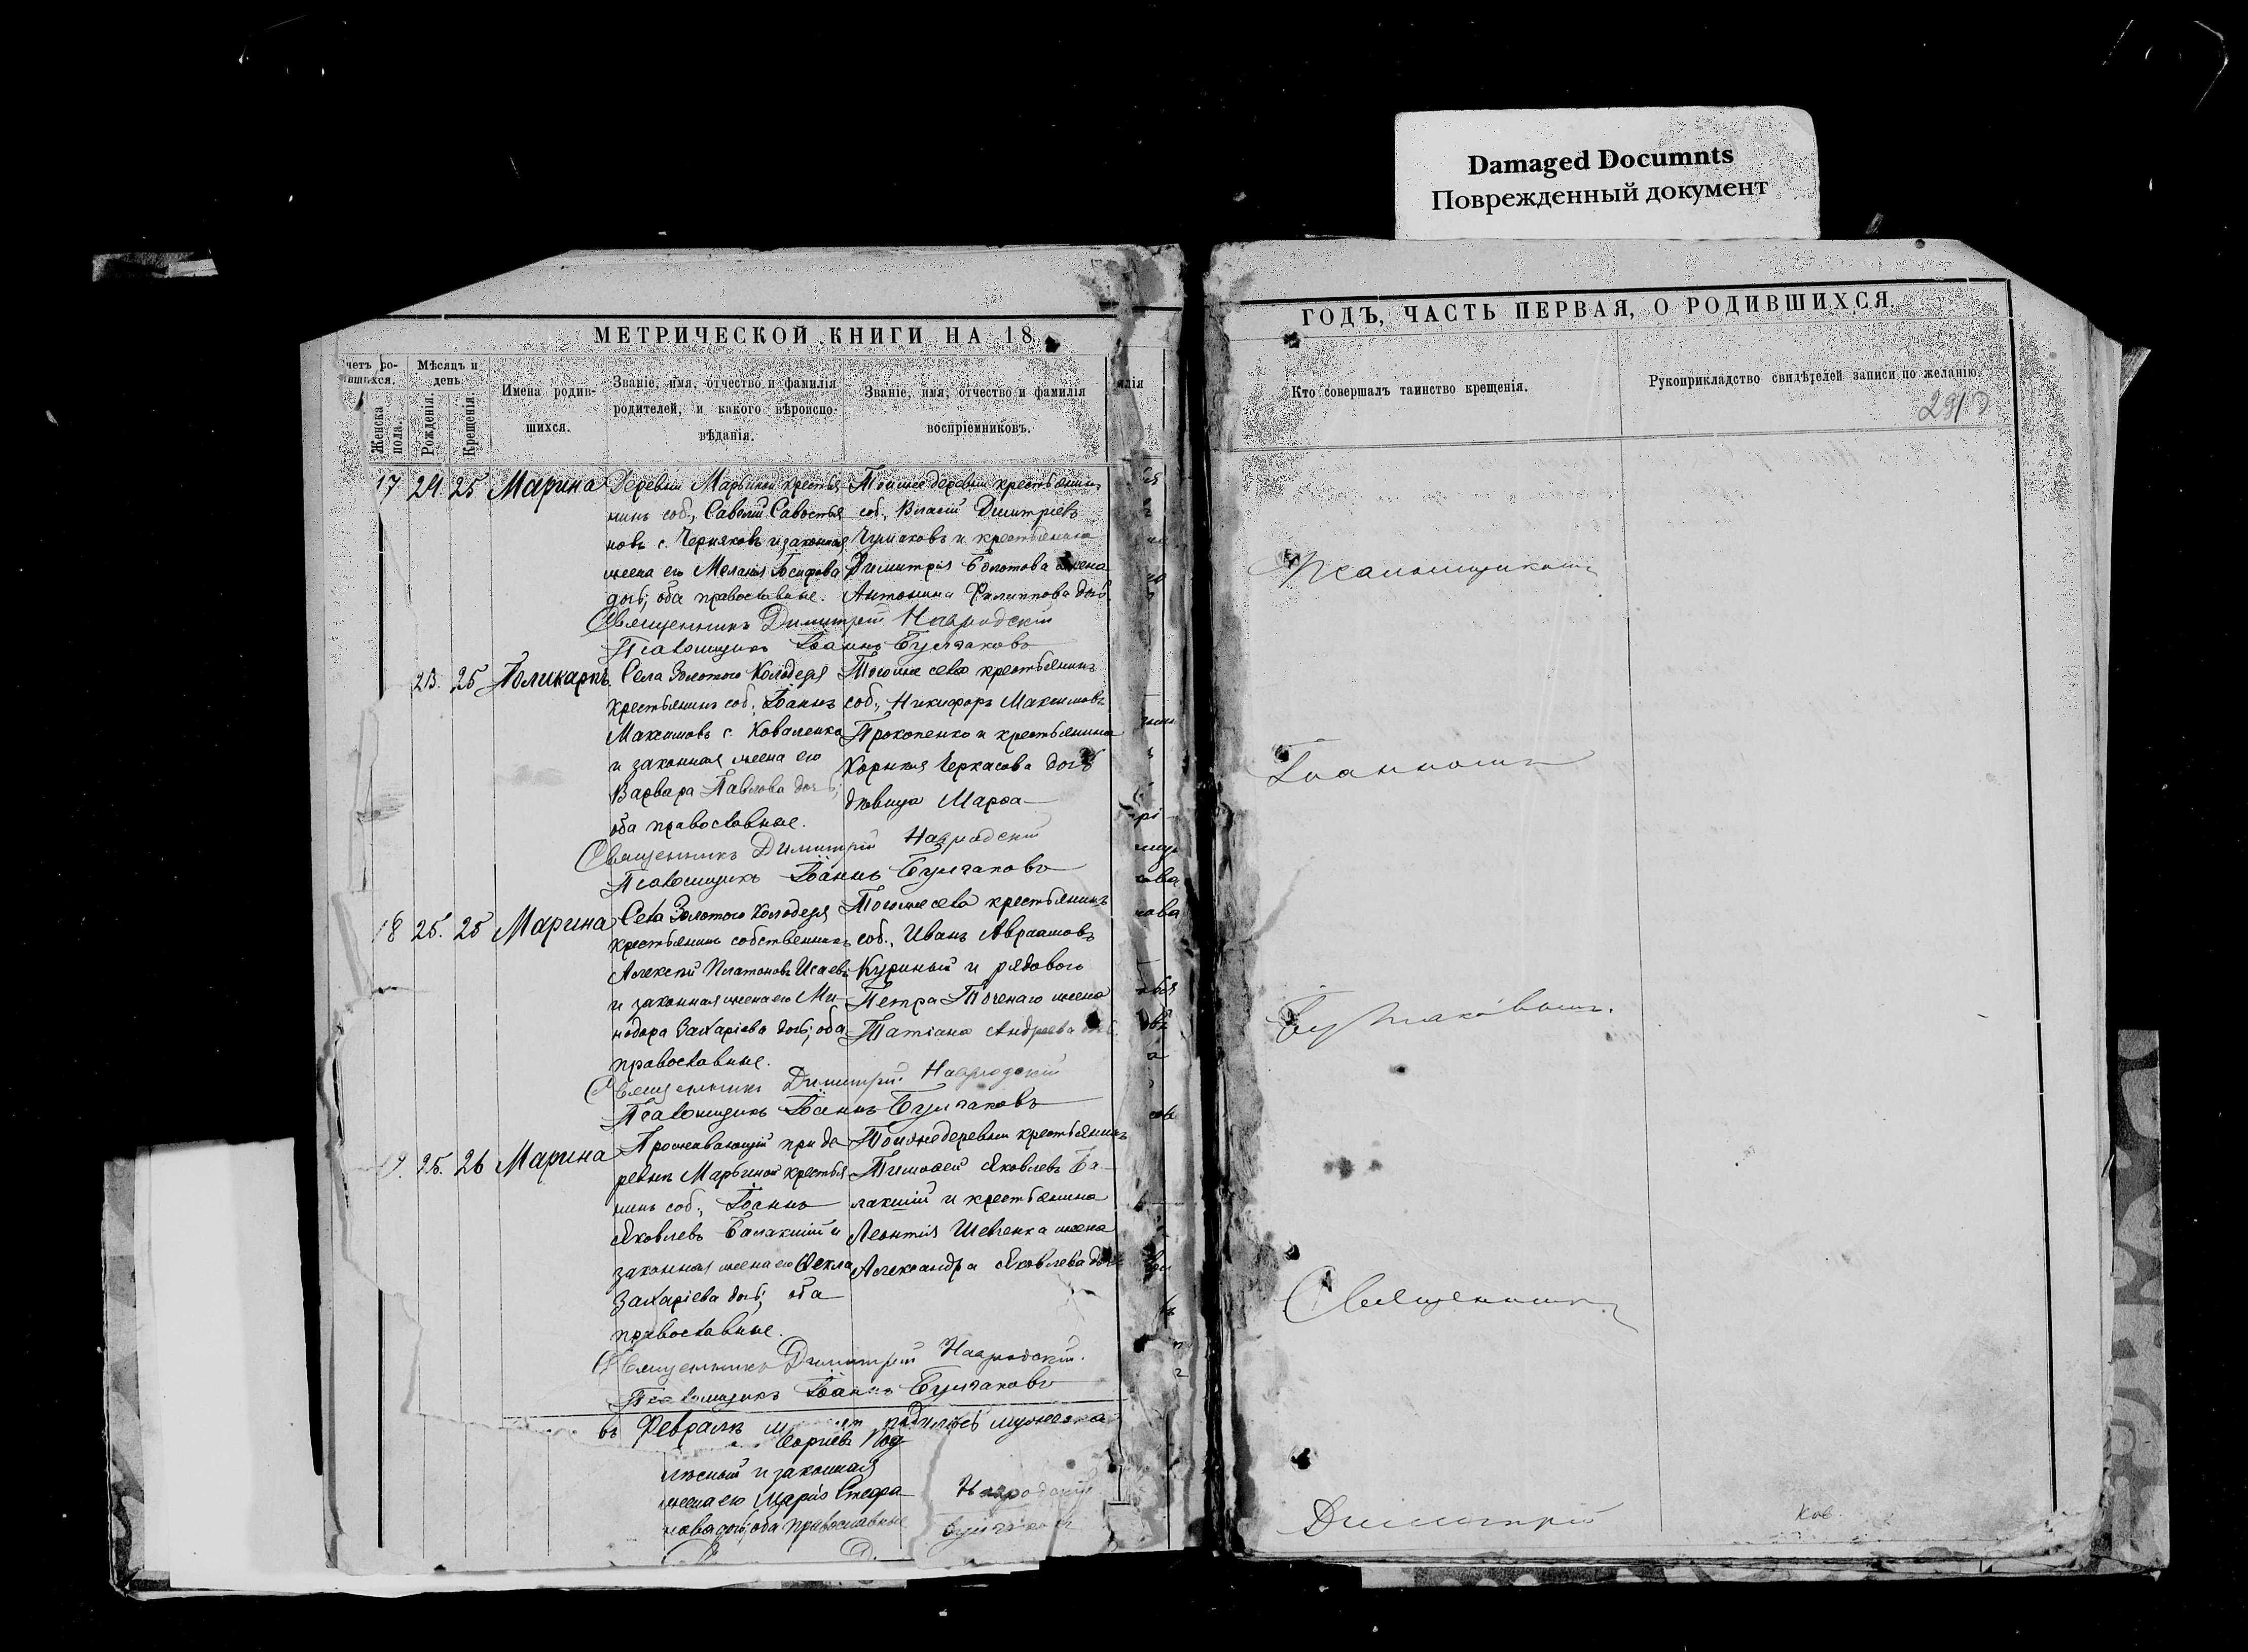 Damaged Documnts
Поврежденный документ
МЕТРИЧЕСКОЙ КНИГИ НА 18
ГОДЪ, ЧАСТЬ ПЕРВАЯ, О РОДИВШИХСЯ.
Мѣсяцъ и день.
Женска пола.
Рожденія.
Крещенія.
Имена родив-
шихся.
Званіе, имя, отчество и фамилія
родителей, и какого вѣроиспо-
вѣданія.
Званіе, имя, отчество и фамилія
воспріемниковъ.
Кто совершалъ таинство крещенія.
Рукоприкладство свидѣтелей записи по желанію.
17 24 25 Марина
Деревни Марьиной крестья
нинъ соб., Савелій Савостья
новъ с. Черняковъ и законная
жена его Меланія Іосифова
дочь; оба православные.
Тойже деревни крестьянинъ
соб., Власій Димитріевъ
Чумаковъ и крестьянина
Димитрія Болотова жена
Антонина Филиппова дочь.
Священникъ Димитрій Навродскій
Псаломщикъ Іоаннъ Булгаковъ
23. 25 Поликарпъ.
Села Золотого Колодезя
крестьянинъ соб., Іоаннъ
Максимовъ с. Коваленко
и законная жена его
Варвара Павлова дочь;
оба православные.
Тогоже села крестьянинъ
соб., Никифоръ Максимовъ
Прокопенко и крестьянина
Корнилія Черкасова дочь
дѣвица Марѳа
Священникъ Димитрій Навродскій
Псаломщикъ Іоаннъ Булгаковъ
18 25. 25 Марина
Села Золотого Колодезя
крестьянинъ собственникъ
Алексѣй Платоновъ Исаевъ
и законная жена его Ми-
нодора Захаріева дочь; оба
православные.
Тогоже села крестьянинъ
соб., Иванъ Авраамовъ
Куриный и рядового
Петра Точенаго жена
Татіана Андреева
Священникъ Димитрій Навродскій
Псаломщикъ Іоаннъ Булгаковъ
25. 26 Марина
Проживающій при де
ревнѣ Марьиной крестья
нинъ соб., Іоаннъ
Яковлевъ Балакшій и
законная жена его Ѳекла
Захаріева дочь; оба
православные.
Тойже деревни крестьянинъ
Тимоѳей Яковлевъ Ба-
лакшій и крестьянина
Леонтія Шевченка жена
Александра Яковлева дочь
Священникъ Димитрій Навродскій.
Псаломщикъ Іоаннъ Булгаковъ
въ Февралѣ родилось мужеска
и законная
жена его Марія Стефа
нова дочь; оба православные
Навродскій
Булгаковъ
Псаломщикомъ
Іоанномъ
Булгаковымъ.
Священникъ
Димитрій
Ков